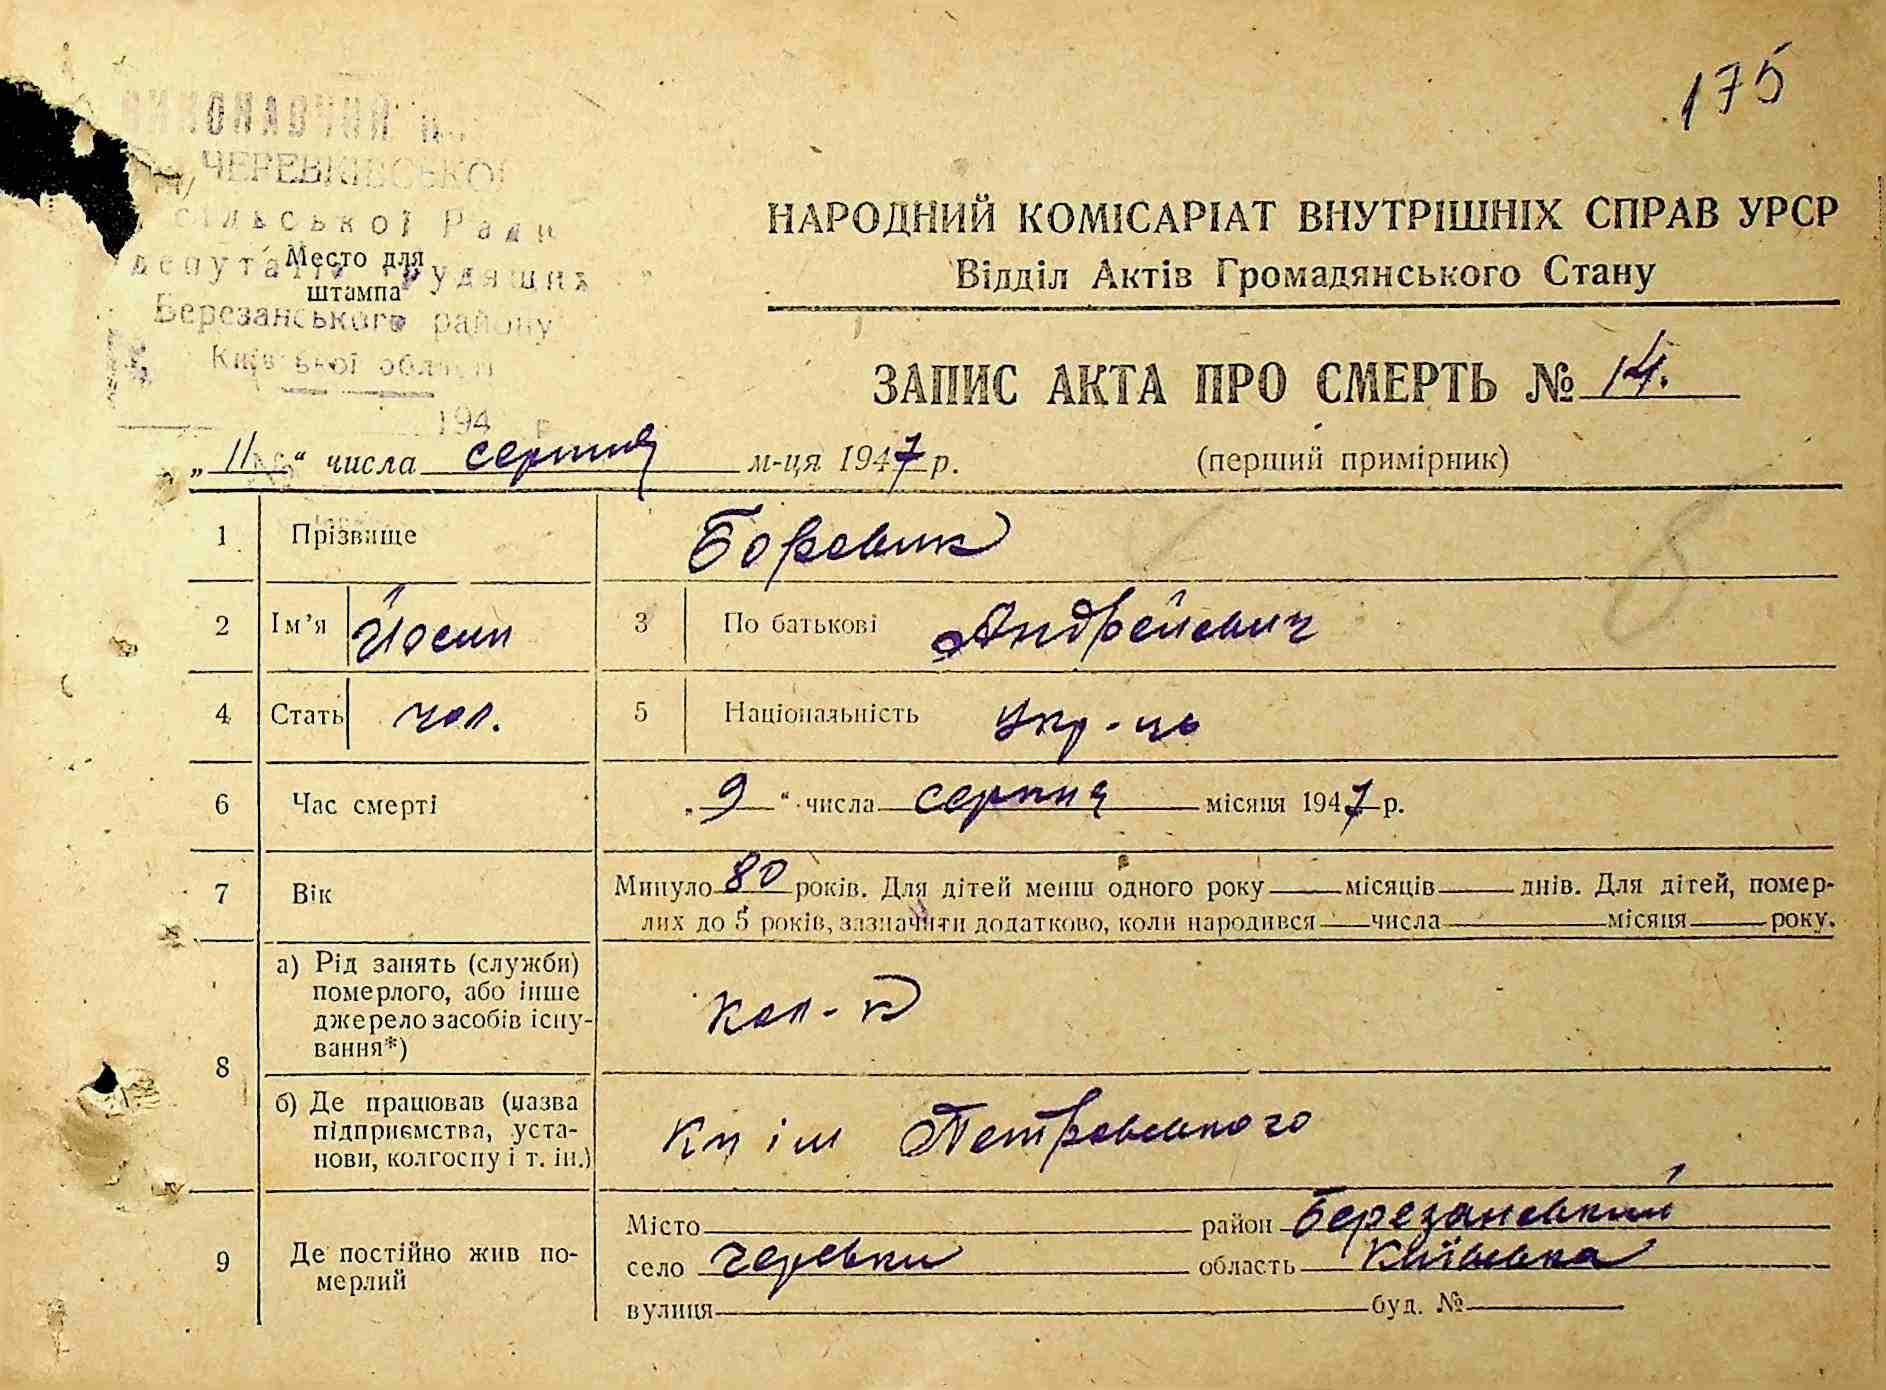 175
ВИКОНАВЧИЙ
ЧЕРЕВКІВСЬКОЇ
сільської Ради
депутатів трудящих
Место для
штампа
Березанського району
Київської області
194 р.
НАРОДНИЙ КОМІСАРІАТ ВНУТРІШНІХ СПРАВ УРСР
Відділ Актів Громадянського Стану
ЗАПИС АКТА ПРО СМЕРТЬ № 14.
„11“ числа серпня м-ця 1947 р. (перший примірник)
1 Прізвище Боровик
2 Ім’я Йосип 3 По батькові Андрейович
4 Стать чол. 5 Національність Укр-ць
6 Час смерті „9“ числа серпня місяця 1947 р.
7 Вік Минуло 80 років. Для дітей менш одного року місяців днів. Для дітей, помер-
лих до 5 років, зазначити додатково, коли народився числа місяця року.
8 а) Рід занять (служби)
померлого, або інше
джерело засобів існу-
вання*) кол-к
б) Де працював (назва
підприємства, уста-
нови, колгоспу і т. ін.) Кп ім Петровського
9 Де постійно жив по-
мерлий
Місто район Березанський
село Черевки область Київська
вулиця буд. №